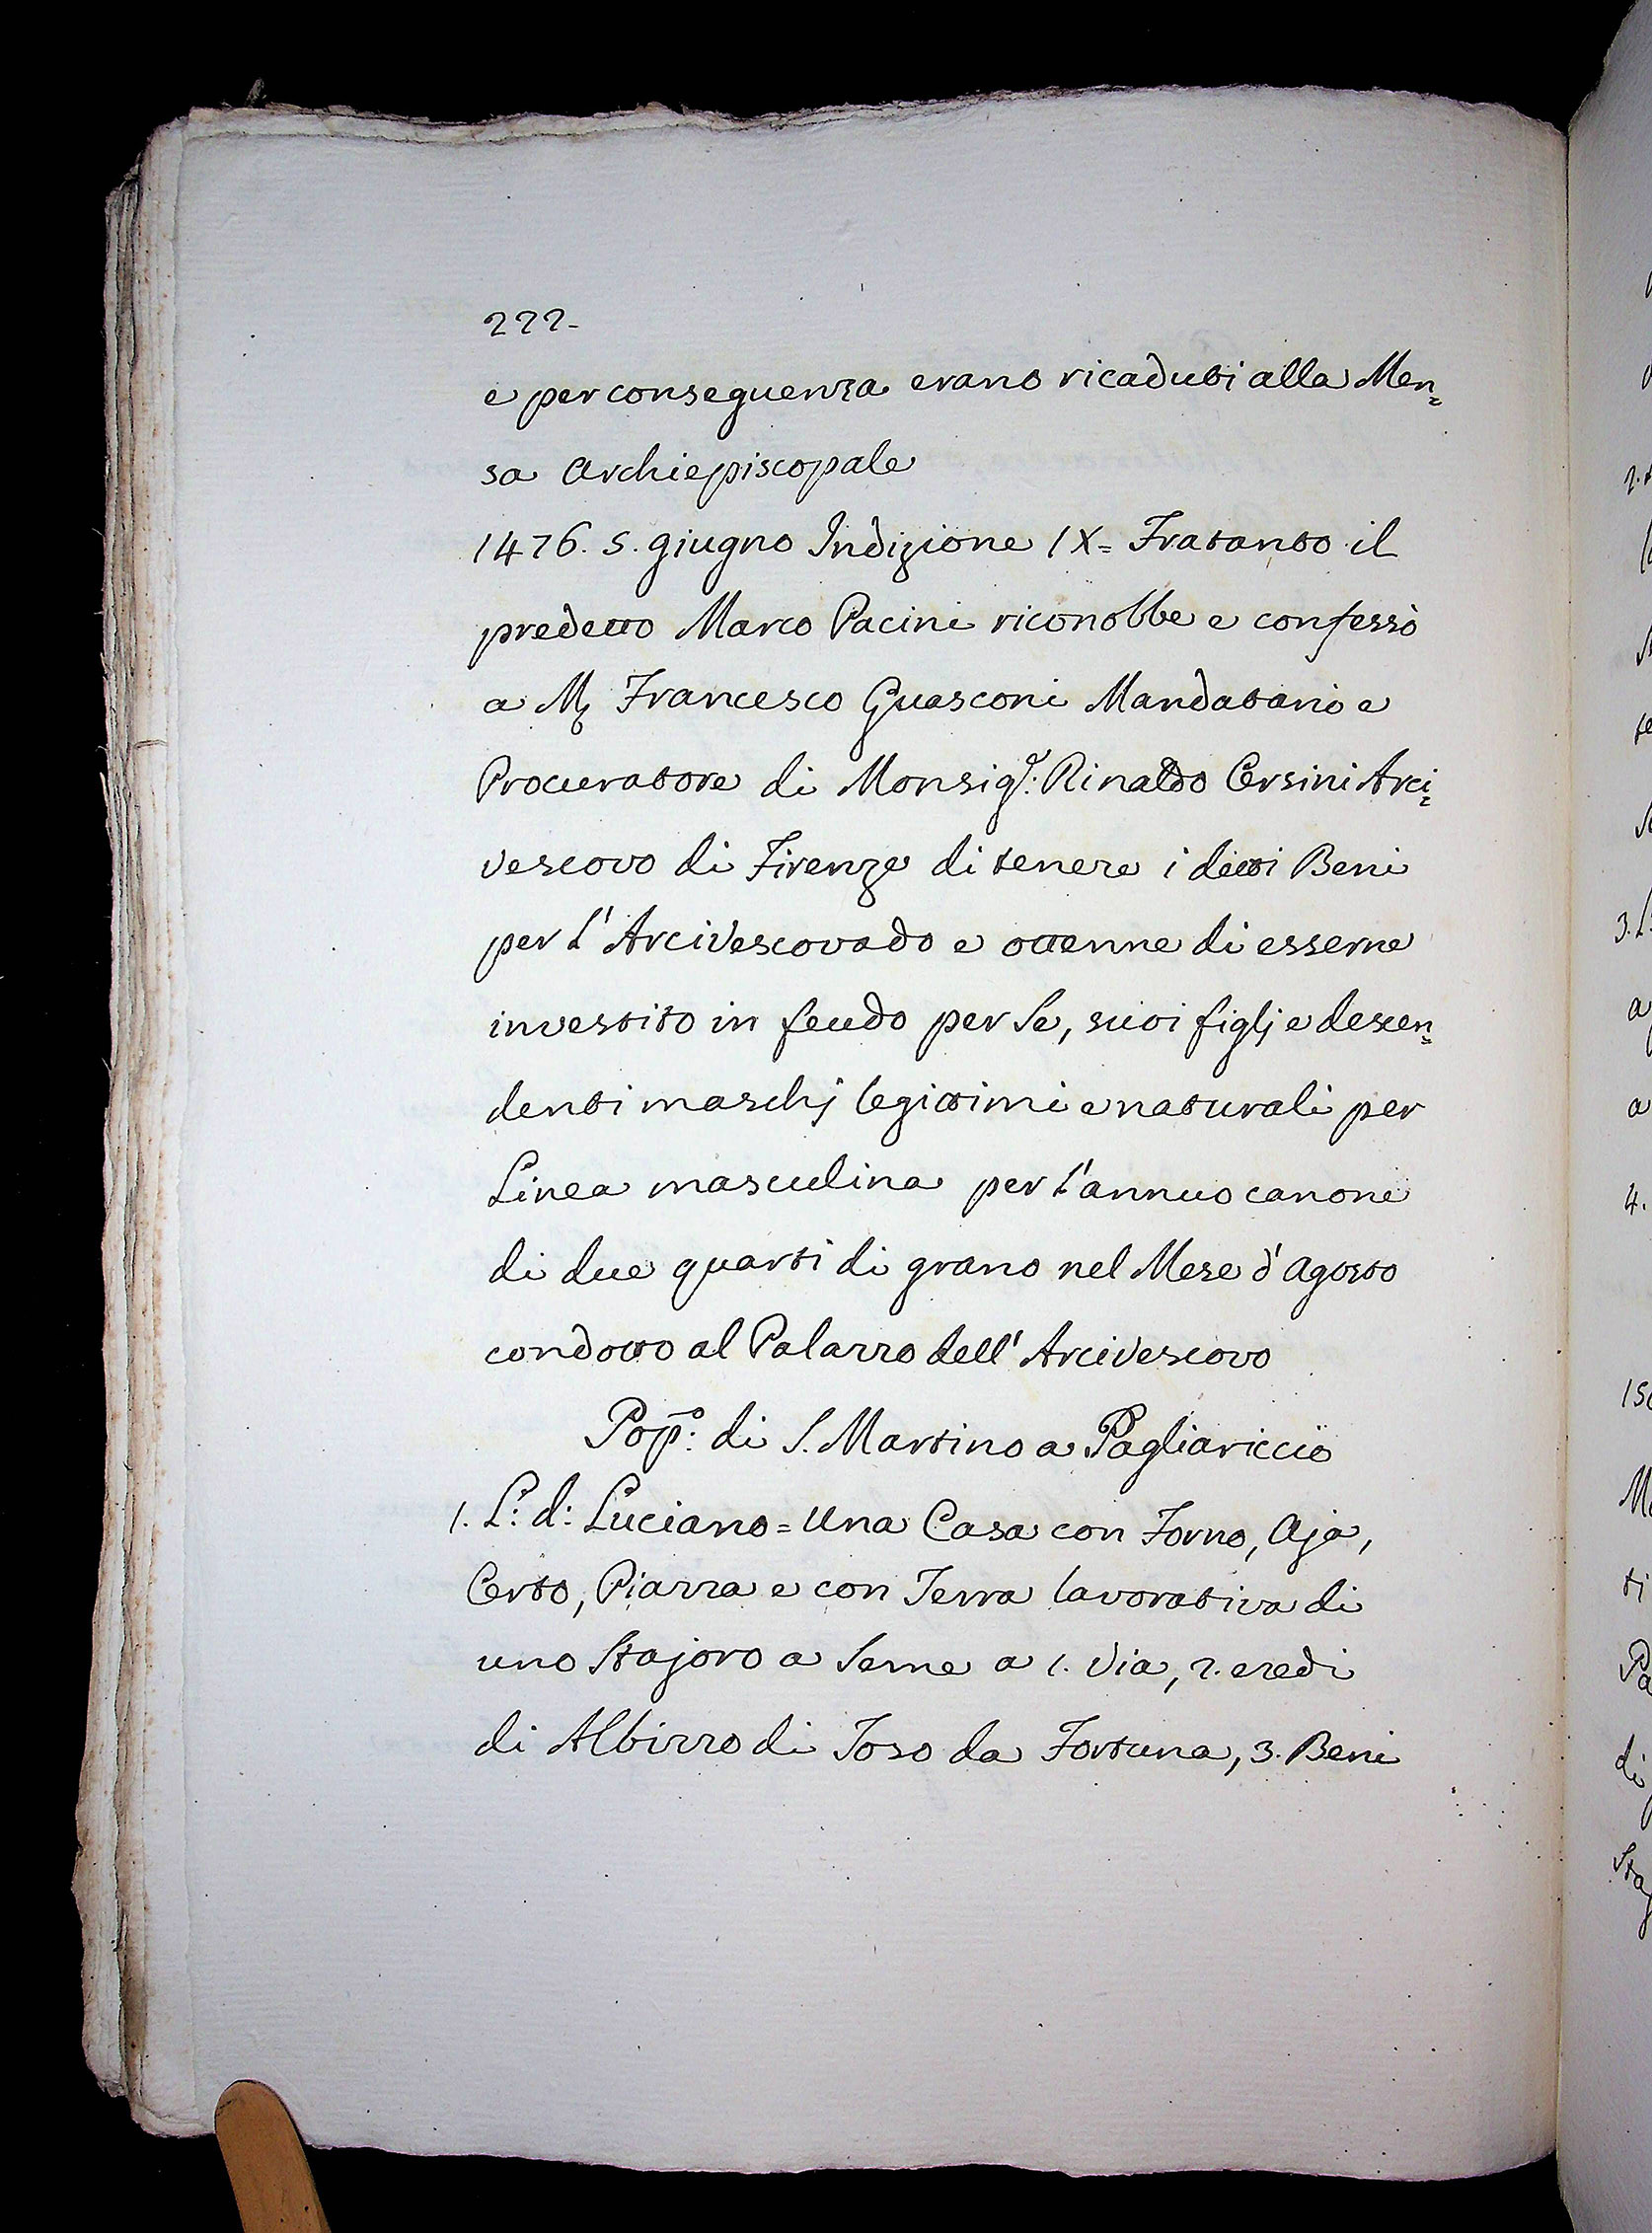 222.
e per conseguenza erano ricaduti alla Men=
sa Archiepiscopale
1476. 5. giugno Indizione IX= Fratanto il
predetto Marco Pacini riconobbe e confessò
a Mʳ Francesco Guasconi Mandatario e
Procuratore di Monsigʳ: Rinaldo Orsini Arci=
vescovo di Firenze di tenere i detti Beni
per l'Arcivescovado e ottenne di esserne
investito in feudo per Se, suoi figlj e descen=
denti maschj legittimi e naturali per
Linea masculina per l'annuo canone
di due quarti di grano nel Mese d'Agosto
condotto al Palazzo dell'Arcivescovo
Popº: di S. Martino a Pagliariccio
1. L: d: Luciano= Una Casa con Forno, Aja,
Orto, Piazza e con Terra lavorativa di
uno Stajoro a Seme a 1. Via, 2. eredi
di Albizzo di Toso da Fortuna, 3. Beni